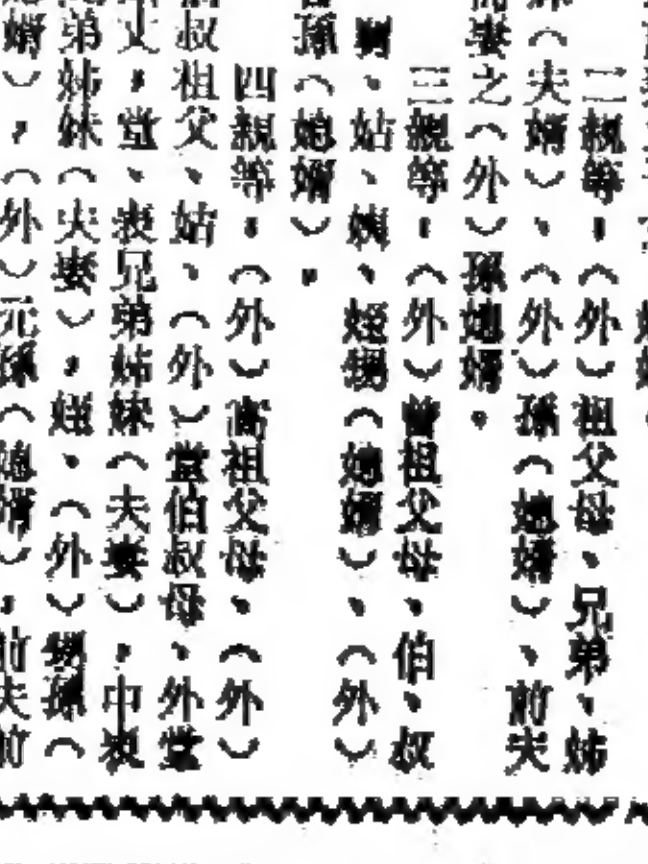 二親等：（外）祖父母、兄弟、姊
（夫婿）、（外）孫（媳婿）、前夫
妻之（外）孫媳婿。
三親等：（外）曾祖父母、伯、叔
舅、姑、姨、姪甥（媳婿）、（外）
孫（媳婿）。
四親等：（外）高祖父母、（外）
叔祖父、姑、（外）堂伯叔母、外堂
丈，堂、表兄弟姊妹（夫妻），中表
弟姊妹（夫妻），姪、（外）甥孫（
婿），（外）元孫（媳婿），前夫前